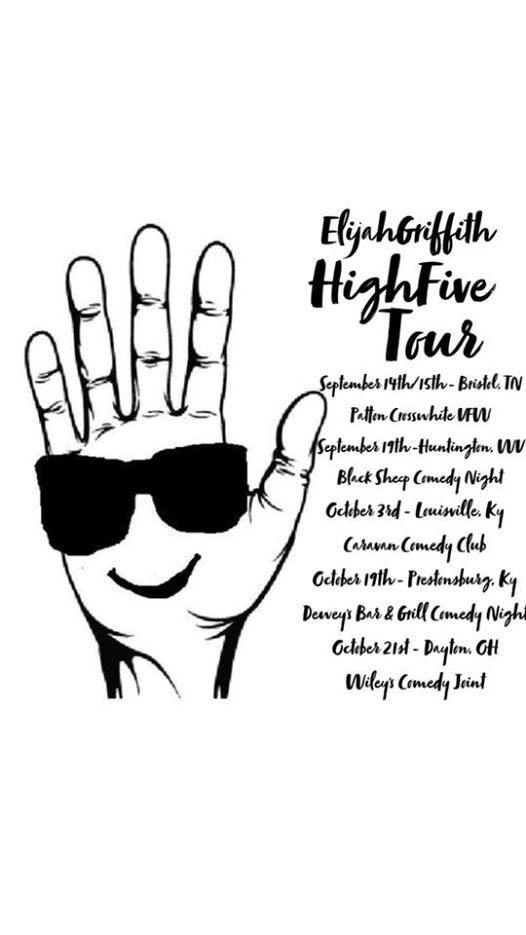 ElijahGriffith
HighFive
Tour
September 14th/15th - Bristol, TN
Patton Crosswhite VFW
September 19th -Huntington, WV
Black Sheep Comedy Night
October 3rd - Louisville, Ky
Caravan Comedy Club
October 19th - Prestonsburg, Ky
Dewey's Bar & Grill Comedy Night
October 21st - Dayton, OH
Wiley's Comedy Joint